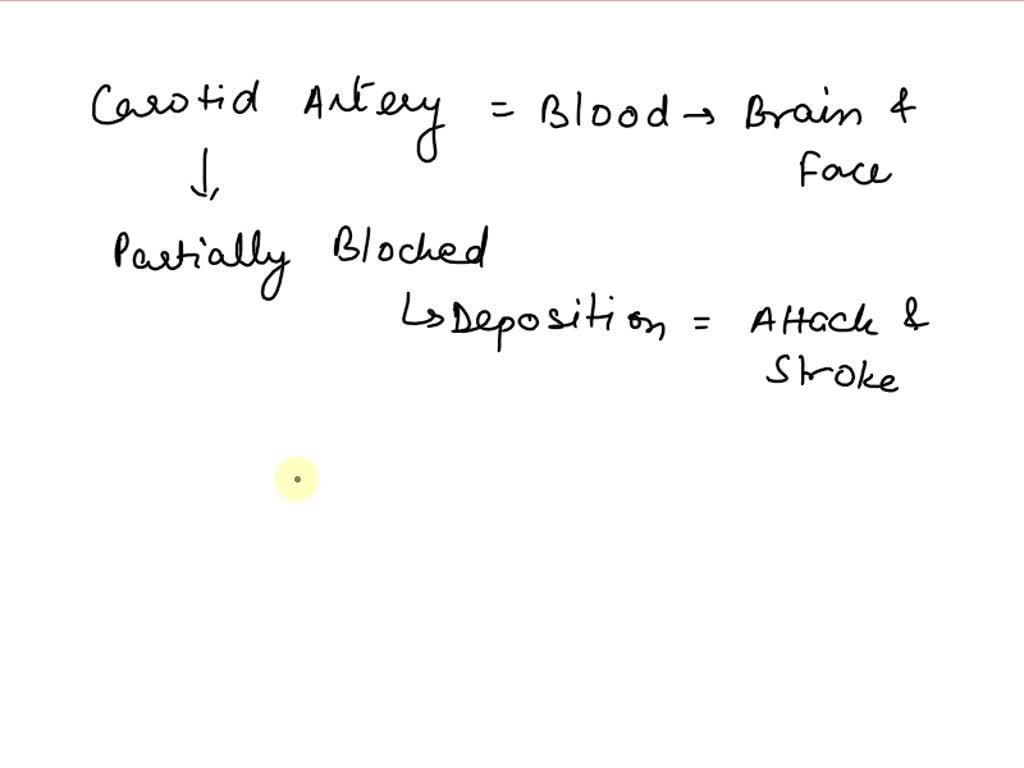 Carotid Artery = Blood → Brain &
Face
↓
Partially Blocked
↳ Deposition = Attack &
Stroke